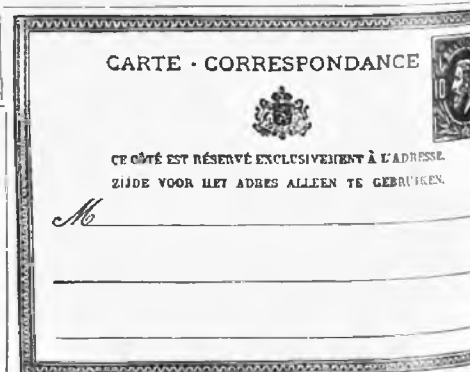 CARTE · CORRESPONDANCE
10
CE CÔTÉ EST RÉSERVÉ EXCLUSIVEMENT À L'ADRESSE.
ZIJDE VOOR HET ADRES ALLEEN TE GEBRUIKEN.
M